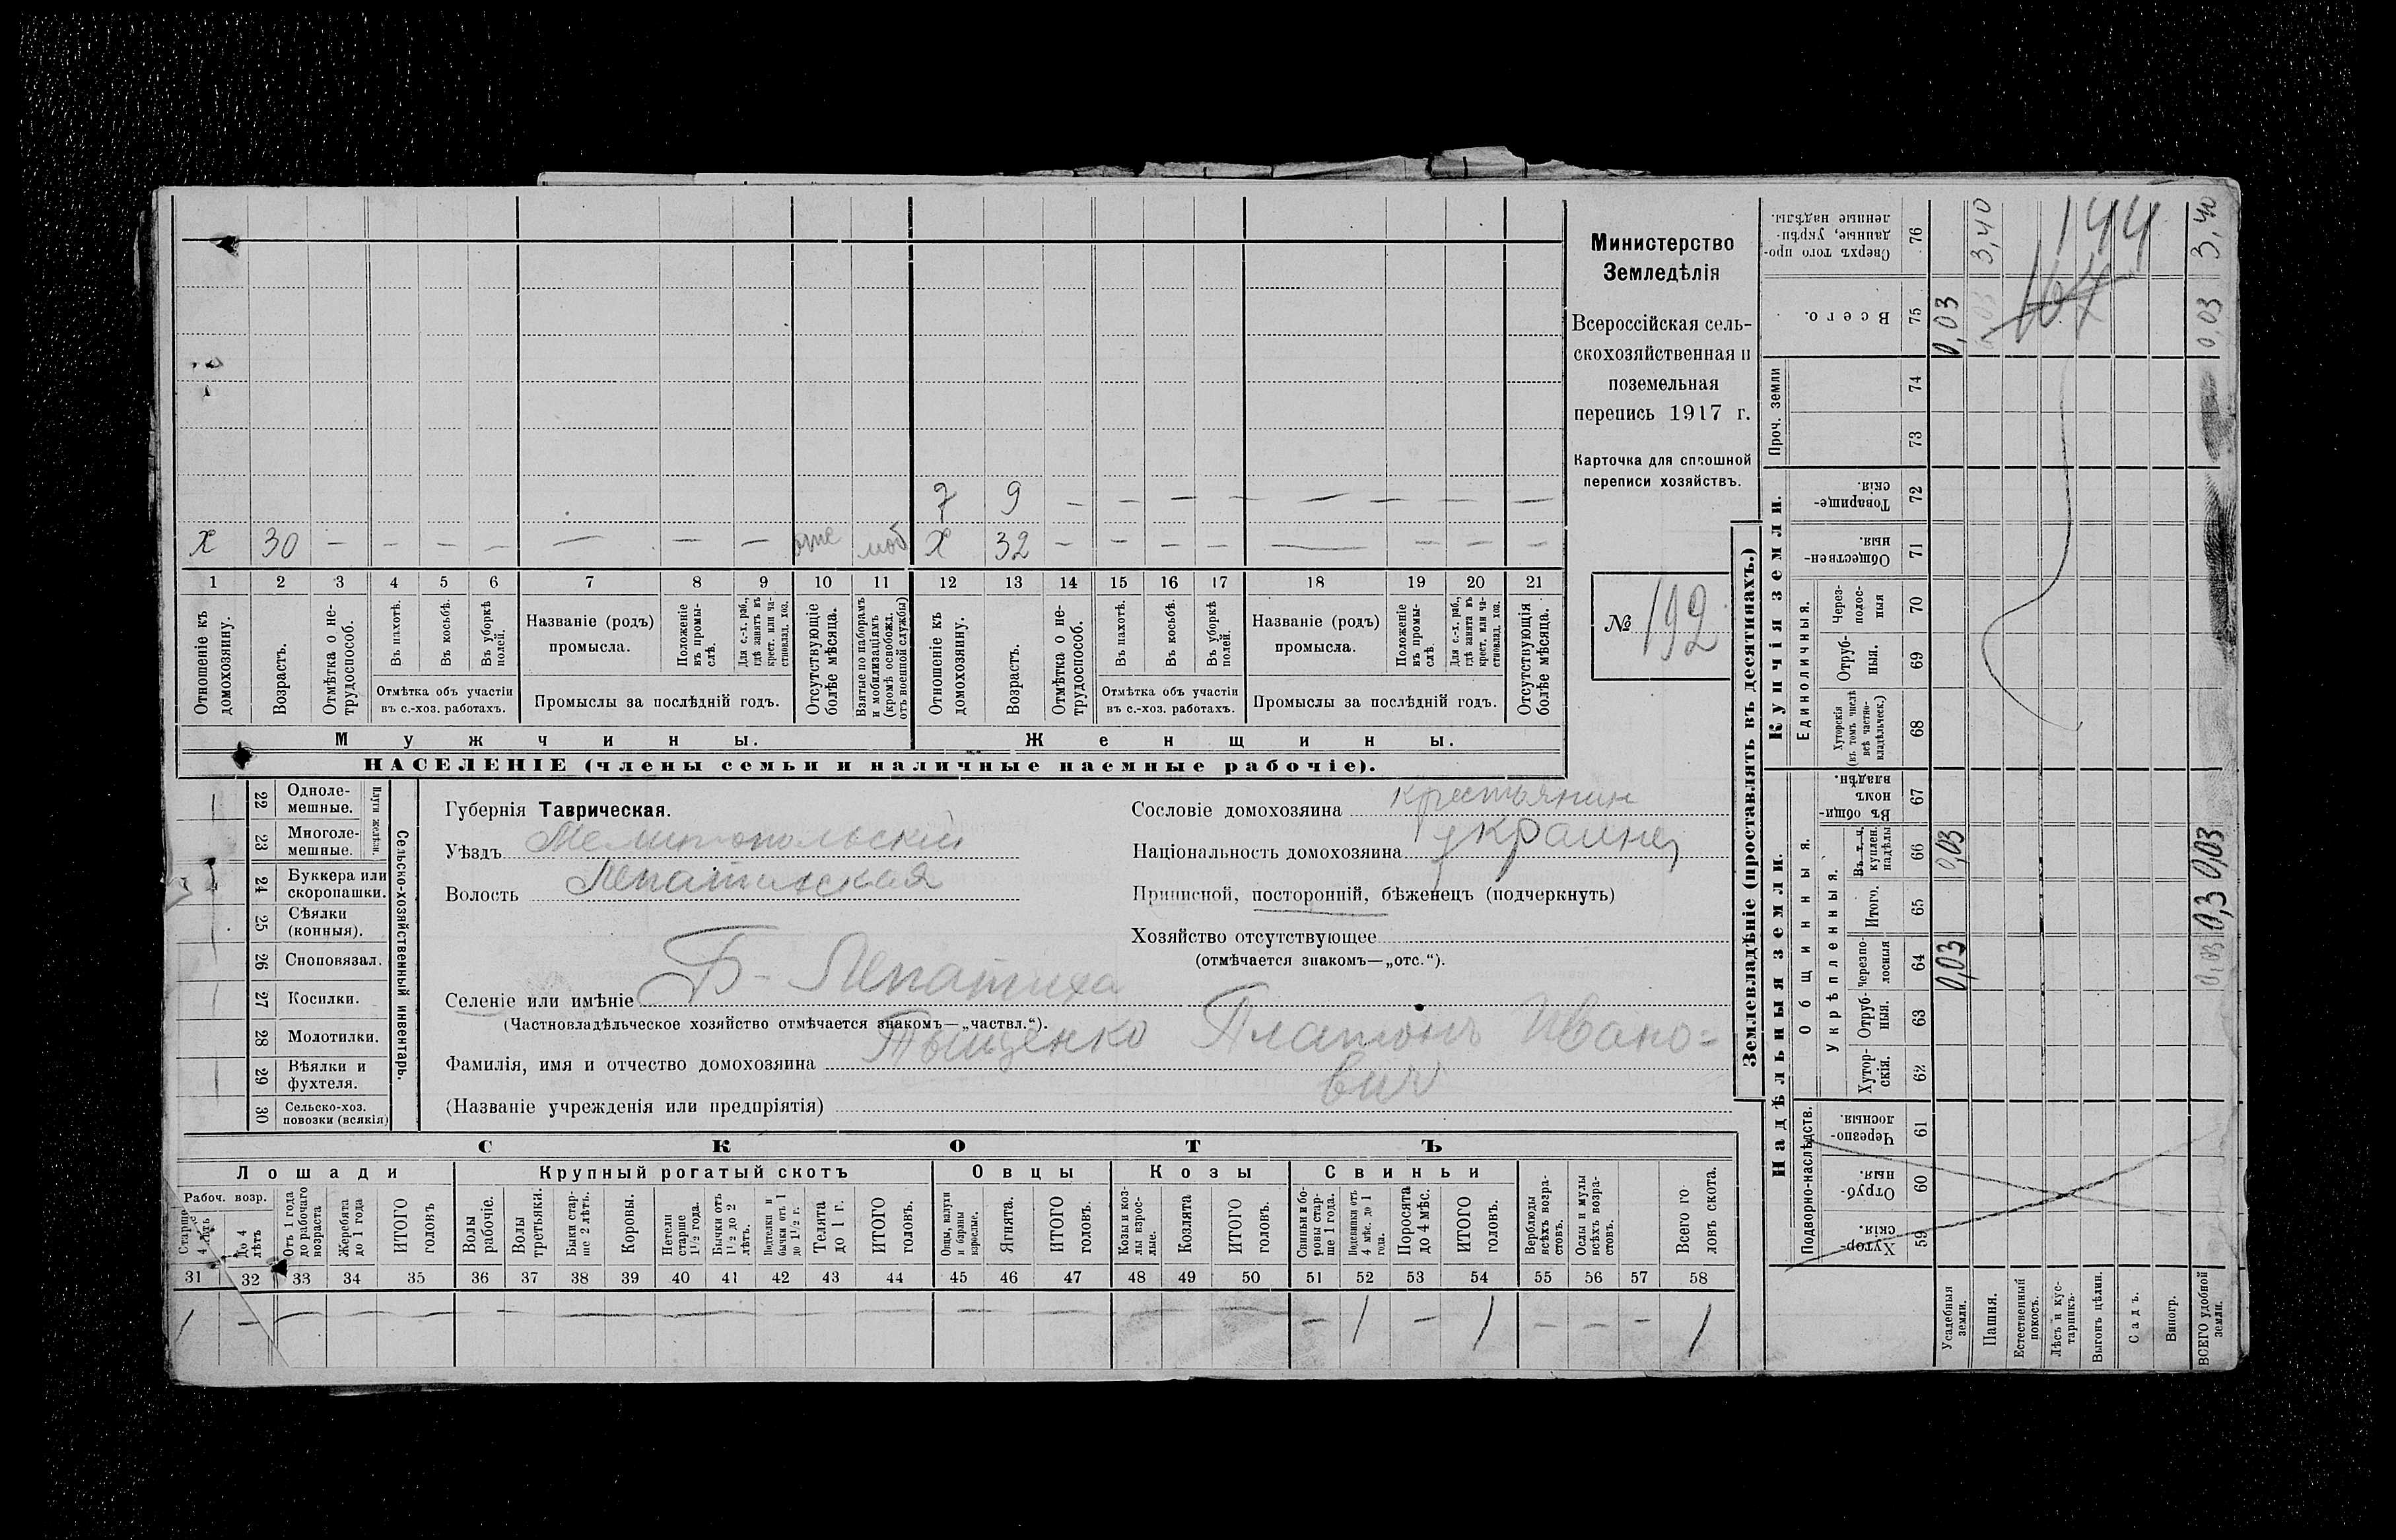 Министерство
Земледѣлія
Всероссійская сель-
скохозяйственная и
поземельная
перепись 1917 г.
Карточка для сплошной
переписи хозяйствъ.
№ 192
7 9 — — — — — — — —
X 30 — — — — — — — отс моб X 32 — — — — — — — —
1 2 3 4 5 6 7 8 9 10 11 12 13 14 15 16 17 18 19 20 21
Отношеніе къ домохозяину.
Возрастъ.
Отмѣтка о не-трудоспособ.
Въ пахотѣ.
Въ косьбѣ.
Въ уборкѣ полей.
Отмѣтка объ участіи
въ с.-хоз. работахъ.
Названіе (родъ)
промысла.
Положеніе въ промы-слѣ.
Для с.-х. раб., гдѣ занятъ въ крест. или ча-стновлад. хоз.
Промыслы за послѣдній годъ.
Отсутствующіе болѣе мѣсяца.
Взятые по наборамъ и мобилизаціямъ (кромѣ освобожд. отъ военной службы)
Отношеніе къ домохозяину.
Возрастъ.
Отмѣтка о не-трудоспособ.
Въ пахотѣ.
Въ косьбѣ.
Въ уборкѣ полей.
Отмѣтка объ участіи
въ с.-хоз. работахъ.
Названіе (родъ)
промысла.
Положеніе въ промы-слѣ.
Для с.-х. раб., гдѣ занята въ крест. или ча-стновлад. хоз.
Промыслы за послѣдній годъ.
Отсутствующія болѣе мѣсяца.
Мужчины.
Женщины.
НАСЕЛЕНІЕ (члены семьи и наличные наемные рабочіе).
22 Одноле-мешные.
23 Многоле-мешные.
Плуги желѣзн.
24 Буккера или скоропашки.
25 Сѣялки (конныя).
26 Сноповязал.
27 Косилки.
28 Молотилки.
29 Вѣялки и фухтеля.
30 Сельско-хоз. повозки (всякія)
Сельско-хозяйственный инвентарь.
Губернія Таврическая.
Уѣздъ Мелитопольскій
Волость Лепатихская
Сословіе домохозяина крестьянин
Національность домохозяина украинец
Приписной, посторонній, бѣженец (подчеркнуть)
Хозяйство отсутствующее
(отмѣчается знакомъ—„отс.“).
Селеніе или имѣніе Б- Лепатиха
(Частновладѣльческое хозяйство отмѣчается знакомъ—„частвл.“).
Фамилія, имя и отчество домохозяина Тыщенко Платонъ Ивано=
вич
(Названіе учрежденія или предпріятія)
СКОТЪ
Лошади
Крупный рогатый скотъ
Овцы
Козы
Свиньи
Рабоч. возр.
Старше 4 лѣтъ
До 4 лѣтъ
Отъ 1 года до рабочаго возраста
Жеребята до 1 года
ИТОГО головъ
Волы рабочіе.
Волы третьяки.
Быки стар-ше 2 лѣтъ.
Коровы.
Нетели старше 1½ года.
Бычки отъ 1½ до 2 лѣтъ.
Подтелки и бычки отъ 1 до 1½ г.
Телята до 1 г.
ИТОГО головъ.
Овцы, валухи и бараны взрослые.
Ягнята.
ИТОГО головъ.
Козы и коз-лы взрос-лые.
Козлята
ИТОГО головъ.
Свиньи и бо-ровы стар-ше 1 года.
Подсвинки отъ 4 мѣс. до 1 года.
Поросята до 4 мѣс.
ИТОГО головъ.
Верблюды всѣхъ возра-стовъ.
Ослы и мулы всѣхъ возра-стовъ.
Всего го-ловъ скота.
31 32 33 34 35 36 37 38 39 40 41 42 43 44 45 46 47 48 49 50 51 52 53 54 55 56 57 58
/ — — — — — — — — — — — — — — — — — — — — 1 — 1 — — — 1
Землевладѣніе (проставлять въ десятинахъ.)
Надѣльныя земли.
Купчія земли.
Подворно-наслѣдств.
Общинныя.
Укрѣпленныя.
Единоличныя.
Проч. земли
Хутор-скія. 59
Отруб-ныя. 60
Черезпо-лосныя. 61
Хутор-скія. 62
Отруб-ныя. 63
Черезпо-лосныя 64
Итого. 65
Въ т. ч. куплен. надѣлы 66
Въ общи-номъ владѣн. 67
Хуторскія (въ томъ числѣ всѣ частно-владѣльческ.) 68
Отруб-ныя. 69
Через-полос-ныя 70
Обществен-ныя. 71
Товарище-скія. 72
73
74
Всего. 75
Сверхъ того про-данные, укрѣп-ленные надѣлы. 76
Усадебныя земли. 0,03 0,03 0,03
Пашня. 3,40
Естественный покосъ.
Лѣсъ и кус-тарникъ.
Выгонъ цѣлин.
Садъ.
Виногр.
ВСЕГО удобной земли. 0,03 0,3 0,03 0,03 3,40
164
144